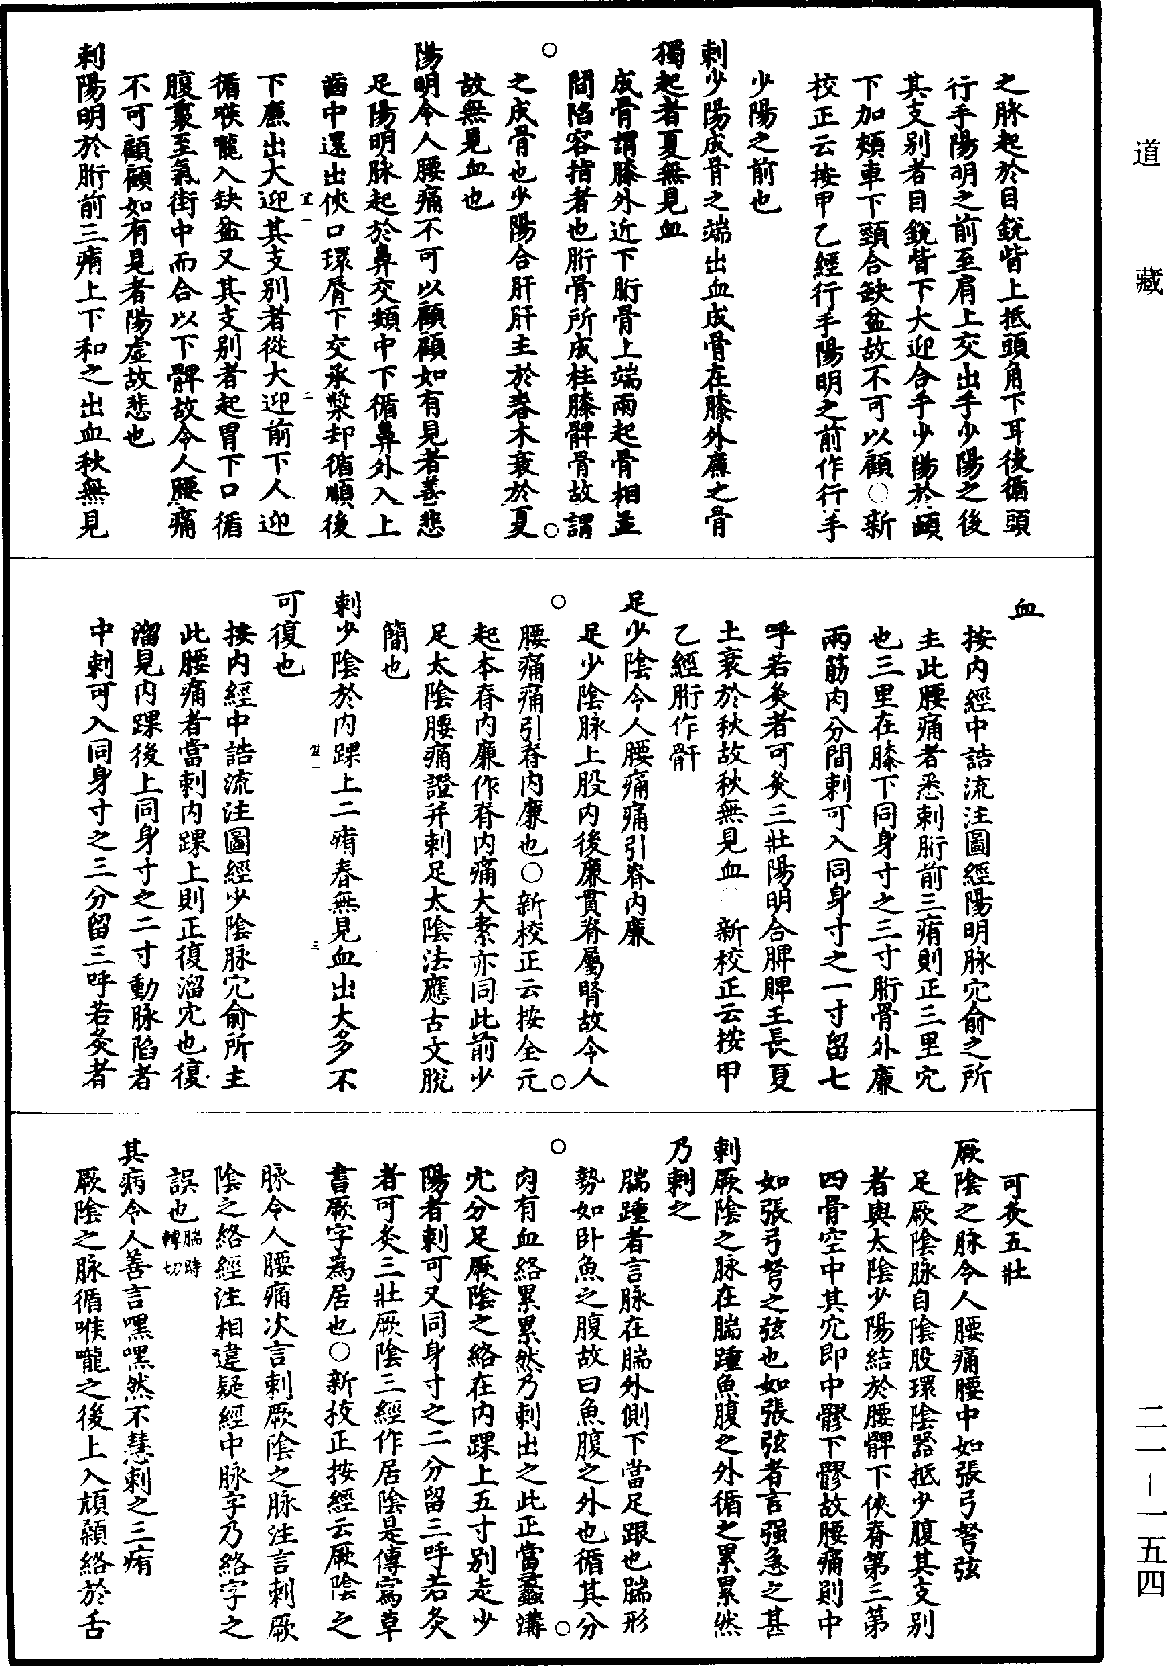 道藏
之脉起於目銳眥上抵頭角下耳後循頭
行手陽明之前至肩上交出手少陽之後
其支别者目銳眥下大迎合手少陽於䪼
下加頰車下頸合缺盆故不可以顧○新
校正云按甲乙經行手陽明之前作行手
少陽之前也
刺少陽成骨之端出血成骨在膝外廉之骨
獨起者夏無見血
成骨謂膝外近下䯒骨上端兩起骨相並
間陷容指者也䯒骨所成柱膝髀骨故謂
之成骨也少陽合肝肝主於春木衰於夏
故無見血也
陽明令人腰痛不可以顧顧如有見者善悲
足陽明脉起於鼻交頞中下循鼻外入上
齒中還出俠口環脣下交承漿却循頤後
下廉出大迎其支别者從大迎前下人迎
循喉嚨入缺盆又其支别者起胃下口循
腹裏至氣街中而合以下髀故令人腰痛
不可顧顧如有見者陽虛故悲也
刺陽明於䯒前三痏上下和之出血秋無見
血
按内經中誥流注圖經陽明脉穴俞之所
主此腰痛者悉刺䯒前三痏則正三里穴
也三里在膝下同身寸之三寸䯒骨外廉
兩筋肉分間刺可入同身寸之一寸留七
呼若灸者可灸三壯陽明合脾脾王長夏
土衰於秋故秋無見血 新校正云按甲
乙經䯒作骭
足少陰令人腰痛痛引脊内廉
足少陰脉上股内後廉貫脊屬腎故令人
腰痛痛引脊内廉也○新校正云按全元
起本脊内廉作脊内痛大素亦同此前少
足太陰腰痛證并刺足太陰法應古文脫
簡也
刺少陰於内踝上二痏春無見血出大多不
可復也
按内經中誥流注圖經少陰脉穴俞所主
此腰痛者當刺内踝上則正復溜穴也復
溜見内踝後上同身寸之二寸動脉陷者
中刺可入同身寸之三分留三呼若灸者
可灸五壯
厥陰之脉令人腰痛腰中如張弓弩弦
足厥陰脉自陰股環陰器抵少腹其支别
者與太陰少陽結於腰髀下俠脊第三第
四骨空中其穴即中髎下髎故腰痛則中
如張弓弩之弦也如張弦者言强急之甚
刺厥陰之脉在腨踵魚腹之外循之累累然
乃刺之
腨踵者言脉在腨外側下當足跟也腨形
勢如卧魚之腹故曰魚腹之外也循其分
肉有血絡累累然乃刺出之此正當蠡溝
穴分足厥陰之絡在内踝上五寸别走少
陽者刺可又同身寸之二分留三呼若灸
者可灸三壯厥陰三經作居陰是傳寫草
書厥字為居也○新挍正按經云厥陰之
脉令人腰痛次言刺厥陰之脉注言刺厥
陰之絡經注相違疑經中脉字乃絡字之
誤也腨時轉切
其病令人善言嘿嘿然不慧刺之三痏
厥陰之脉循喉嚨之後上入頏顙絡於舌
二一—一五四